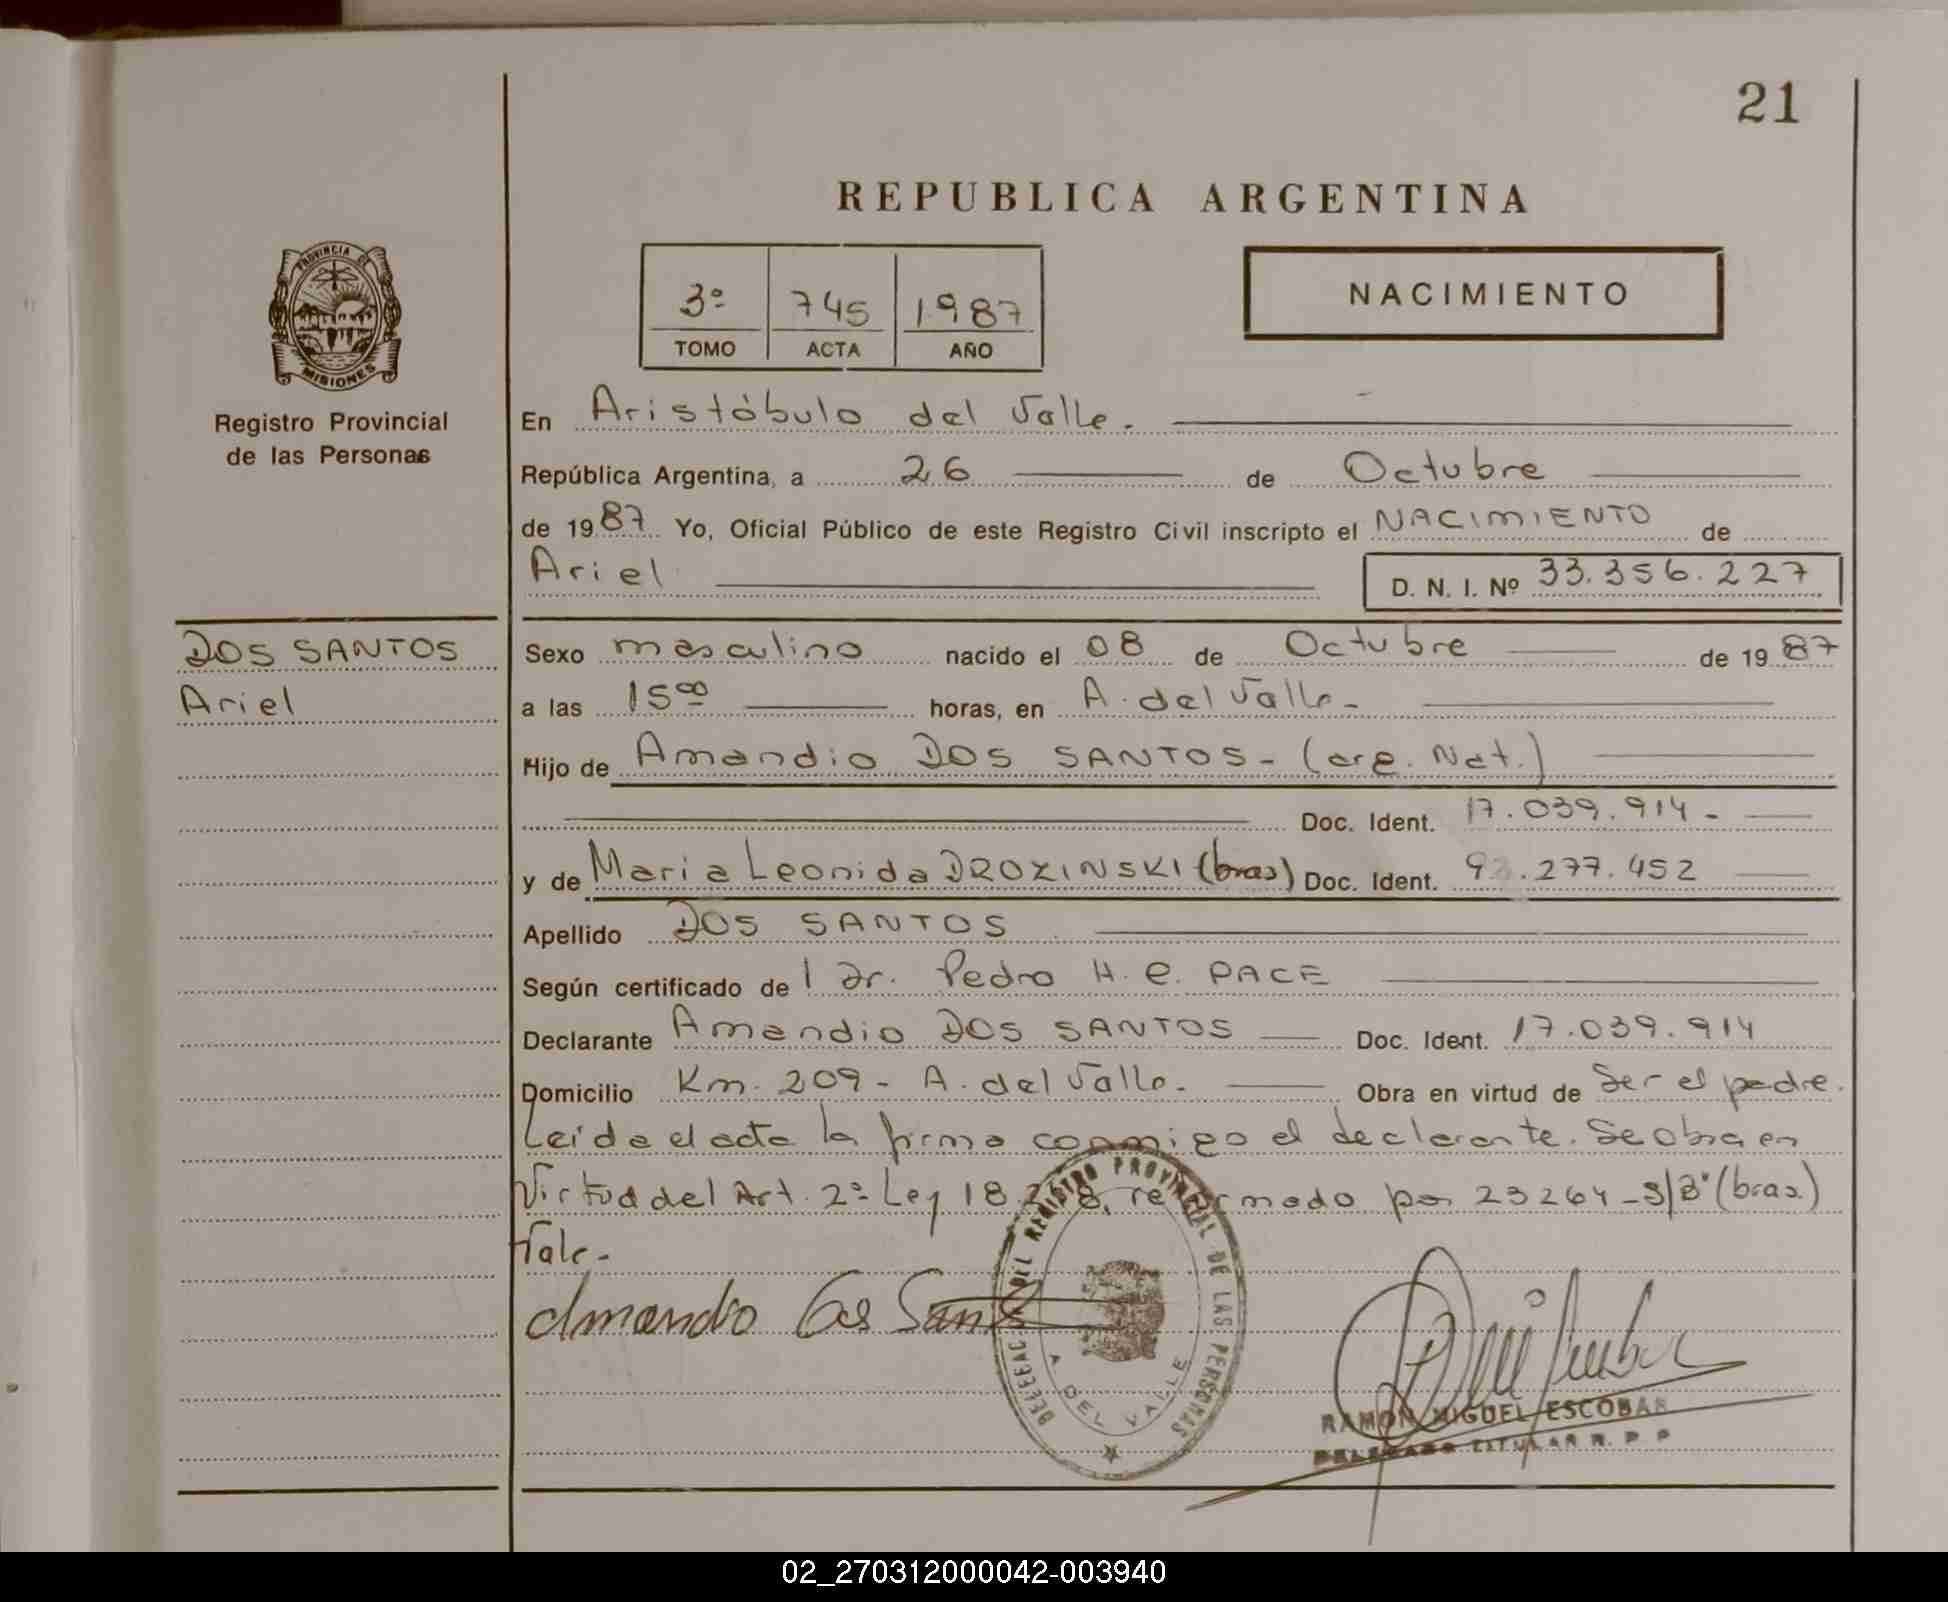 21
REPUBLICA ARGENTINA
PROVINCIA DE
MISIONES
Registro Provincial
de las Personas
3º 745 1987
TOMO ACTA AÑO
NACIMIENTO
En Aristóbulo del Valle.
República Argentina, a 26 de Octubre
de 1987 Yo, Oficial Público de este Registro Civil inscripto el NACIMIENTO de
Ariel D. N. I. Nº 33.356.227
DOS SANTOS
Ariel
Sexo masculino nacido el 08 de Octubre de 1987
a las 15⁰⁰ horas, en A. del Valle-
Hijo de Amandio DOS SANTOS- (arg. Nat.)
Doc. Ident. 17.039.914-
y de Maria Leonida DROZINSKI (bras) Doc. Ident. .277.452
Apellido DOS SANTOS
Según certificado de l Dr. Pedro H. e. PACE
Declarante Amandio DOS SANTOS Doc. Ident. 17.039.914
Domicilio Km. 209- A. del Valle- Obra en virtud de Ser el padre.
Leida el acta la firma conmigo el declarante. Se obra en
Virtud del Art. 2º Ley 18. por 23264-S/B"(bras)
Vale-
Amandio Dos Santos
DEL REGISTRO PROVINCIAL DE LAS PERSONAS
A. DEL VALLE
RAMON MIGUEL ESCOBAR
DELEGADO TITULAR R. P. P
02_270312000042-003940